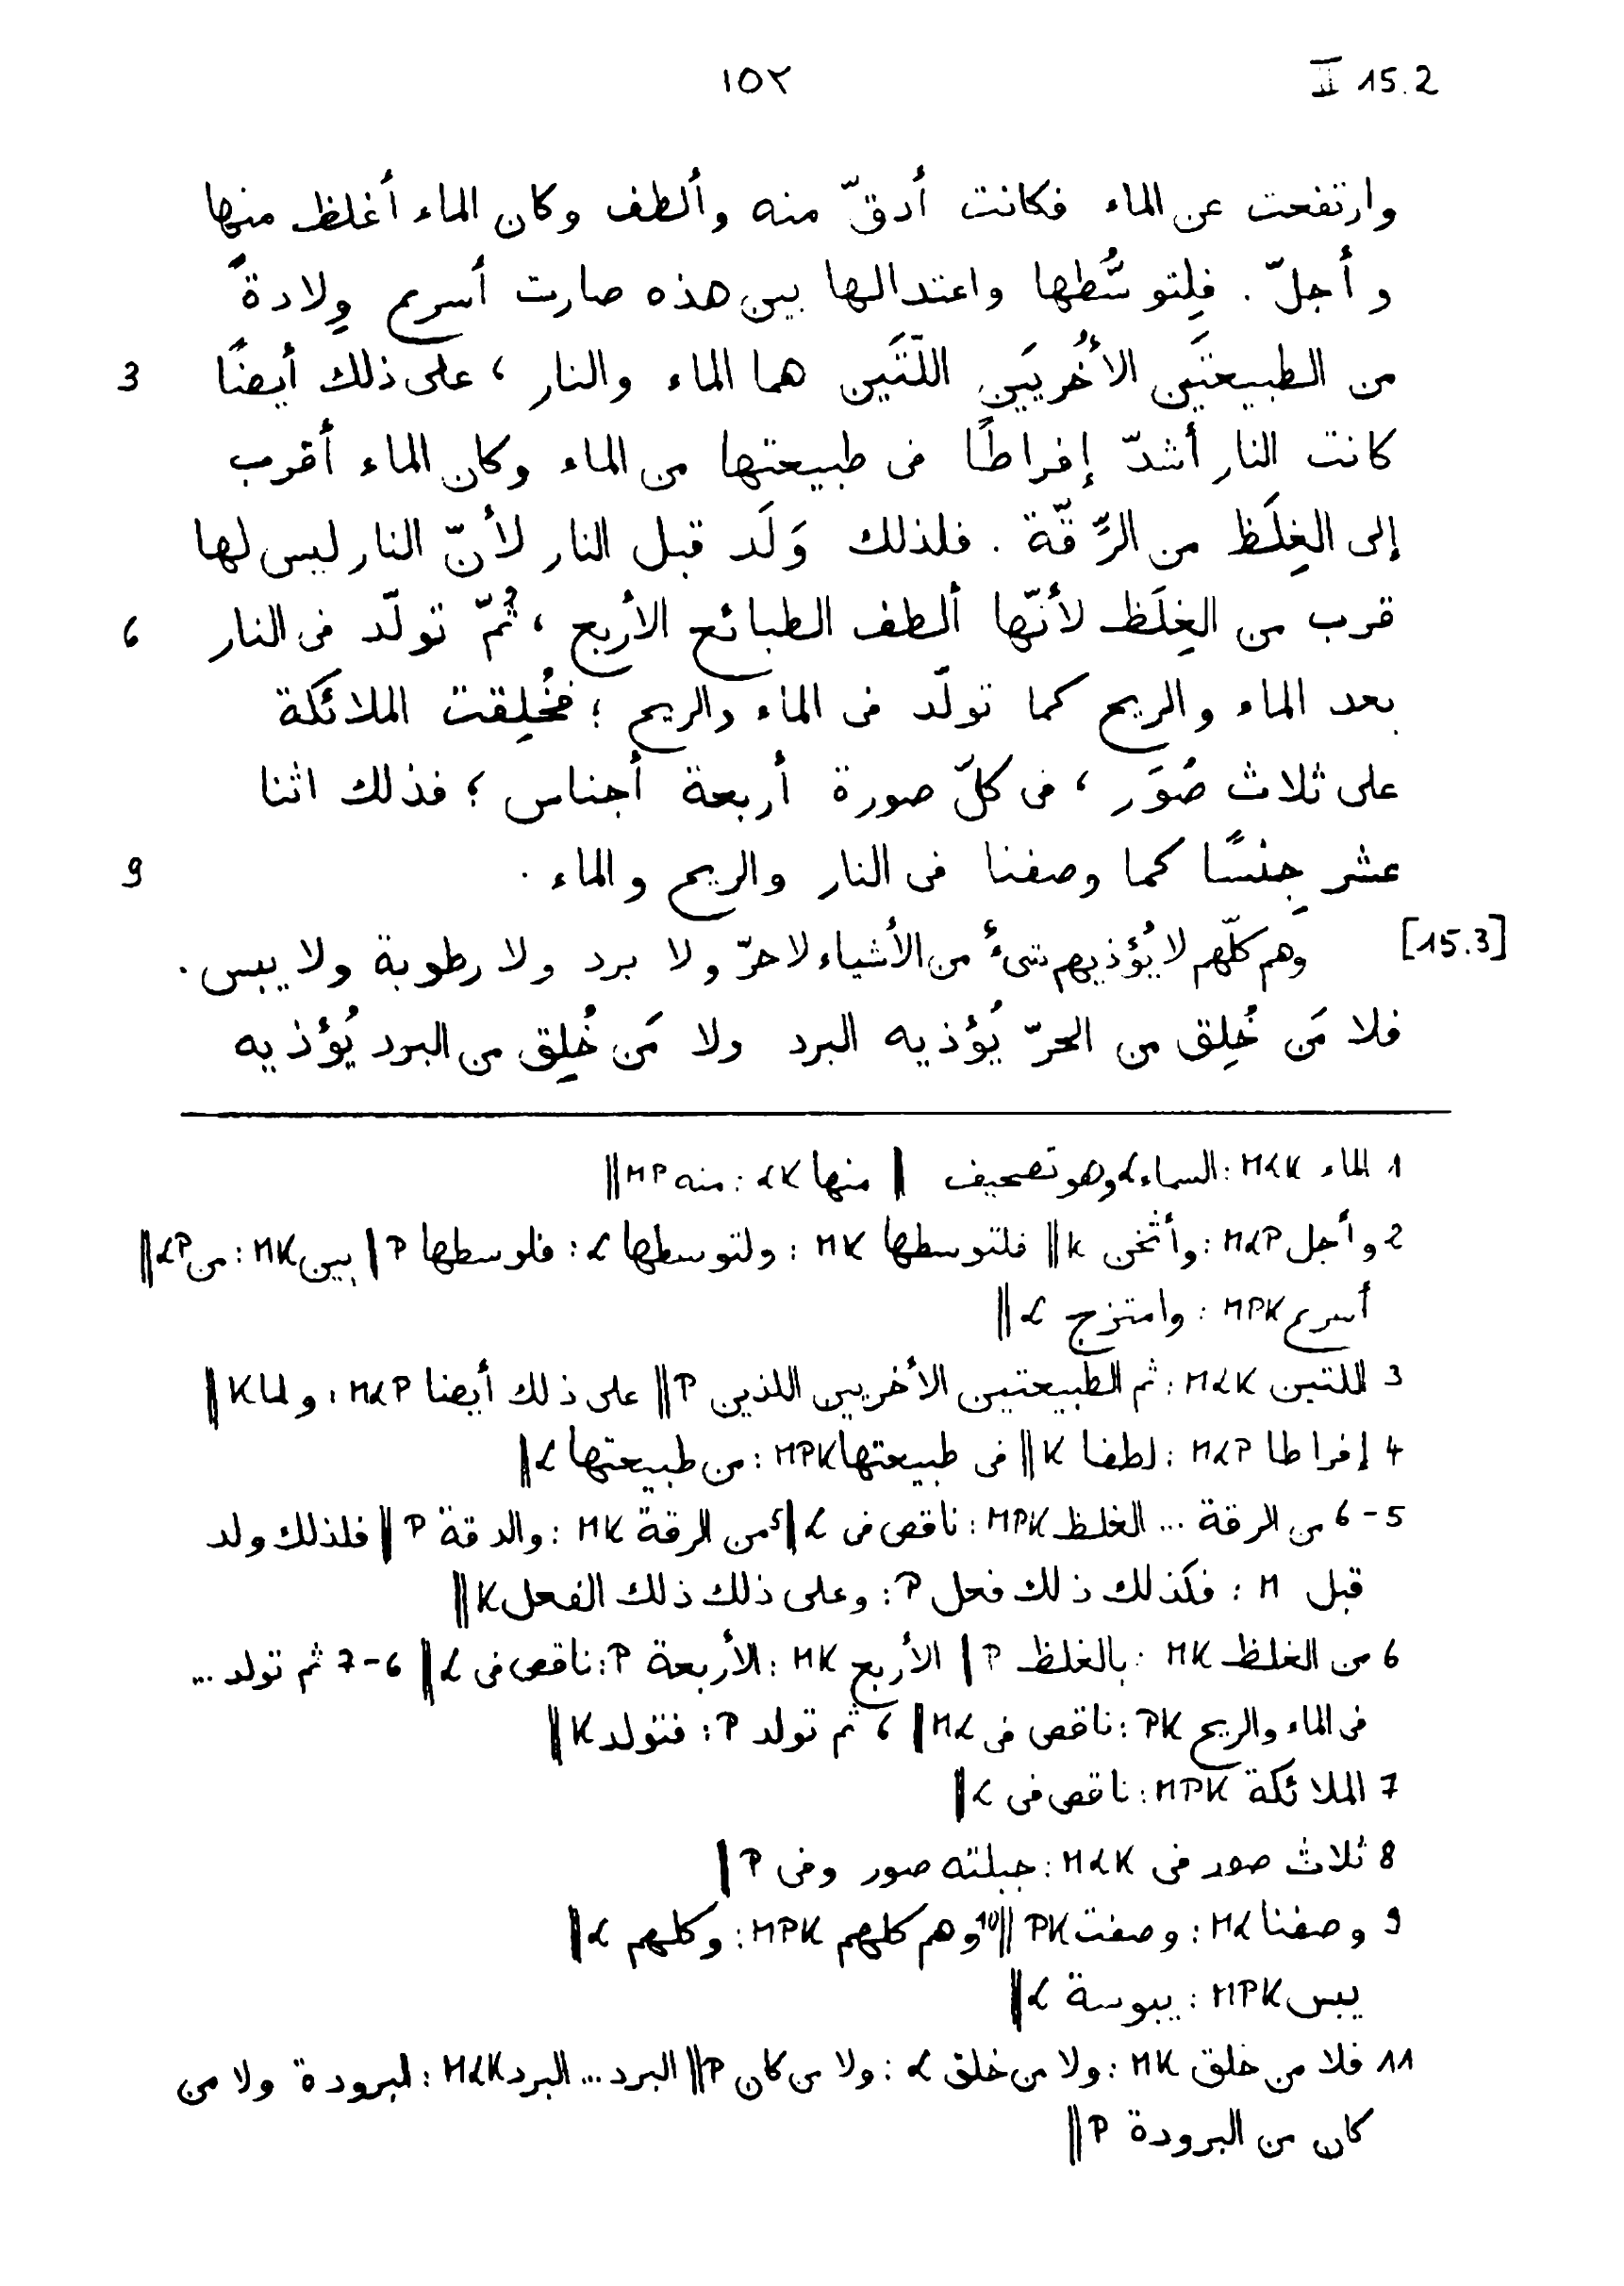 II 15.2
١٥٢
وارتفعت عن الماء فكانت أدقّ منه وألطف وكان الماء أغلظ منها
وأجلّ . فلِتوسُّطها واعتدالها بين هذه صارت أسرع وِلادةً
3 من الطبيعتَين الأُخريَين اللّتَين هما الماء والنار ، على ذلك أيضًا
كانت النار أشدّ إفراطًا فى طبيعتها من الماء وكان الماء أقرب
إلى الغِلَظ من الرِّقّة . فلذلك وَلَد قبل النار لأنّ النار ليس لها
6 قرب من الغِلَظ لأنّها ألطف الطبائع الأربع ، ثُمّ تولّد فى النار
بعد الماء والريح كما تولّد فى الماء والريح ؛ فخُلِقت الملائكة
على ثلاث صُوَر ، فى كلّ صورة أربعة أجناس ؛ فذلك اثنا
9 عشر جِنسًا كما وصفنا فى النار والريح والماء .
[15.3] وهم كلّهم لا يُؤذيهم شىءٌ من الأشياء لا حرّ ولا برد ولا رطوبة ولا يبس .
فلا مَن خُلِق من الحرّ يُؤذيه البرد ولا مَن خُلِق من البرد يُؤذيه
1 الماء MLK : السماء L وهو تصحيف | منها LK : منه MP ||
2 وأجل MLP : وأثخن K || فلتوسطها MK : ولتوسطها L : فلوسطها P | بين MK : من LP ||
أسرع MPK : وامتزج L ||
3 اللتين MLK : ثم الطبيعتين الأخريين اللذين P || على ذلك أيضا MLP : ولما K ||
4 إفراطا MLP : لطفا K || فى طبيعتها MPK : من طبيعتها L ||
5-6 من الرقة ... الغلظ MPK : ناقص فى L || 5 من الرقة MK : والدقة P || فلذلك ولد
قبل M : فكذلك ذلك فعل P : وعلى ذلك ذلك الفعل K ||
6 من الغلظ MK : بالغلظ P | الأربع MK : الأربعة P : ناقص فى L || 6-7 ثم تولد ...
فى الماء والريح PK : ناقص فى ML || 6 ثم تولد P : فتولد K ||
7 الملائكة MPK : ناقص فى L ||
8 ثلاث صور فى MLK : جبلته صور وفى P |
9 وصفنا ML : وصفت PK || 10 وهم كلهم MPK : وكلهم L ||
يبس MPK : يبوسة L ||
11 فلا من خلق MK : ولا من خلق L : ولا من كان P || البرد ... البرد MLK : البرودة ولا من
كان من البرودة P ||